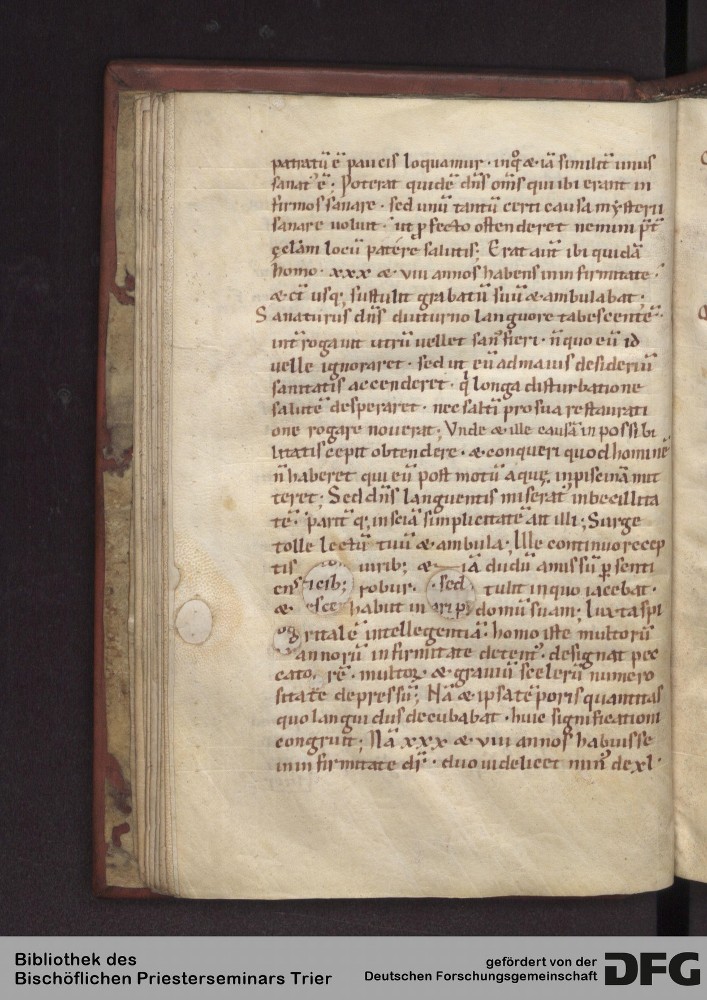 patratū ē paucis loquamur · inq̊ & iā similit̄ unus
sanat᾽ ē; Poterat quidē dn̄s om̄s qui ibi erant in
firmos sanare · sed unū tantū certi causa mysterii
sanare voluit · ut ꝑfecto ostenderet nemini p̄t᾽
ęcl̄am locū patére salutis; Erat aut̄ ibi quidā
homo · xxx & viii annos habens in infirmitate ·
& ct̄ usq; sustulit grabatū suū & ambulabat ·
Sanaturus dn̄s diuturno languore tabescentē ·
int̄rogauit utrū vellet san᾽ fieri · n̄ quo eū id
velle ignoraret · sed ut eū ad maius desideriū
sanitatis accenderet · q longa disturbatione
salutē desperaret · nec saltī pro sua restaurati
one rogare noverat; Unde & ille causā inpossibi
litatis cepit obtendere · & conqueri quod hominē
n̄ haberet qui eū post motū aquę in piscinā mit
teret; Sed dn̄s languentis miserat᾽ inbecillita
tē · parit᾽ q; insciā simplicitatē ait illi; Surge
tolle lectū tuū & ambula; Ille continuo recep
tis virib; & iā dudū amissū ꝑsenti
ens icib; robur · sed tulit in quo iacebat ·
& esce habuit in domū suam; Iuxta spi
ritalē intellegentiā · homo iste multorū
annorū infirmitate detent᾽ · designat pec
cato rē · multoꝝ & graviū scelerū numero
sitate depressū; Nā & ipsa tēporis quantitas
quo languidus decubabat · huic significationi
congruit; Nā xxx & viii annos habuisse
in infirmitate dr̄ · duo videlicet min᾽ de xl ·
Bibliothek des
Bischöflichen Priesterseminars Trier
gefördert von der
Deutschen Forschungsgemeinschaft
DFG